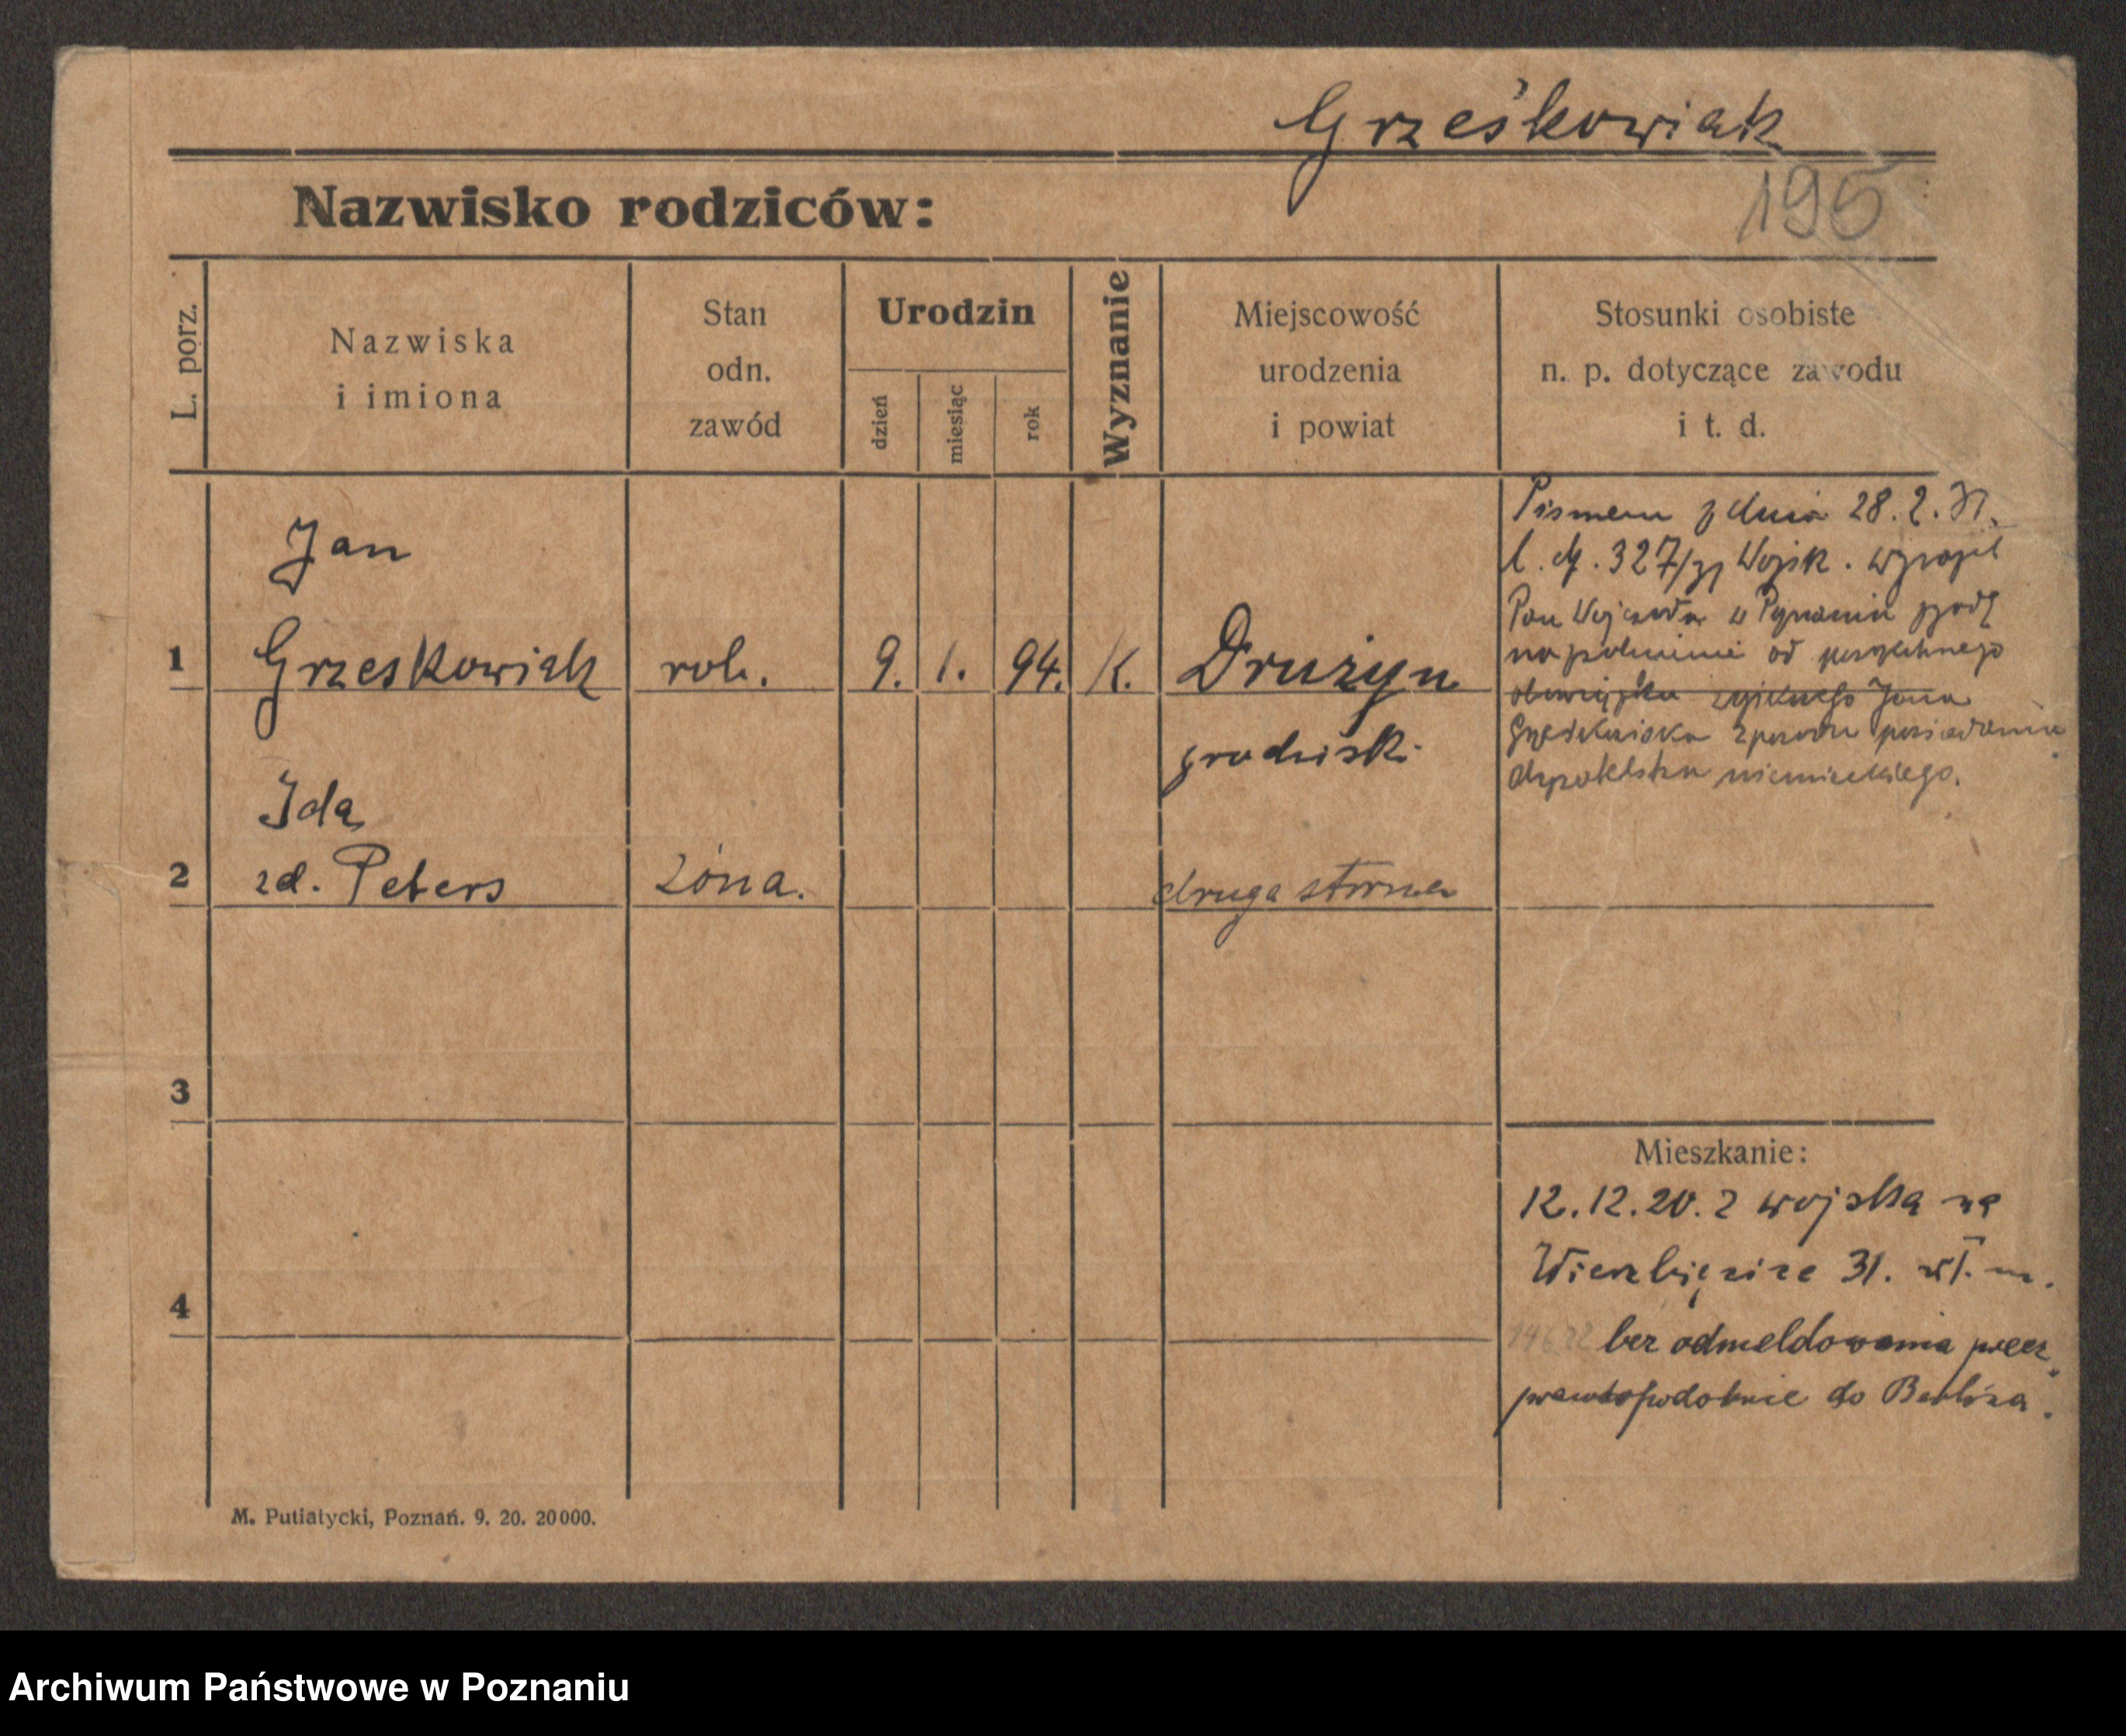 Grześkowiak
195
Nazwisko rodziców:
L. porz.
Nazwiska
i imiona
Stan
odn.
zawód
Urodzin
dzień
miesiąc
rok
Wyznanie
Miejscowość
urodzenia
i powiat
Stosunki osobiste
n. p. dotyczące zawodu
i t. d.
Jan
1 Grzeskowiak rob. 9. 1. 94. K. Drużyn
grodziski
Pismem z dnia 28. 2. 31.
l. dz. 327/31 Wojsk. wyraził
Pan Wojewoda w Poznaniu zgodę
na zwolnienie od powszechnego
obowiązku wojskowego Jana
Grześkowiaka z powodu posiadania
obywatelstwa niemieckiego.
Ida
2 zd. Peters żona. druga strona
3
4
Mieszkanie:
12.12.20. z wojska na
Wierzbięcice 31. wł. m.
bez odmeldowania precz
prawdopodobnie do Berlina.
M. Putiatycki, Poznań. 9. 20. 20000.
Archiwum Państwowe w Poznaniu